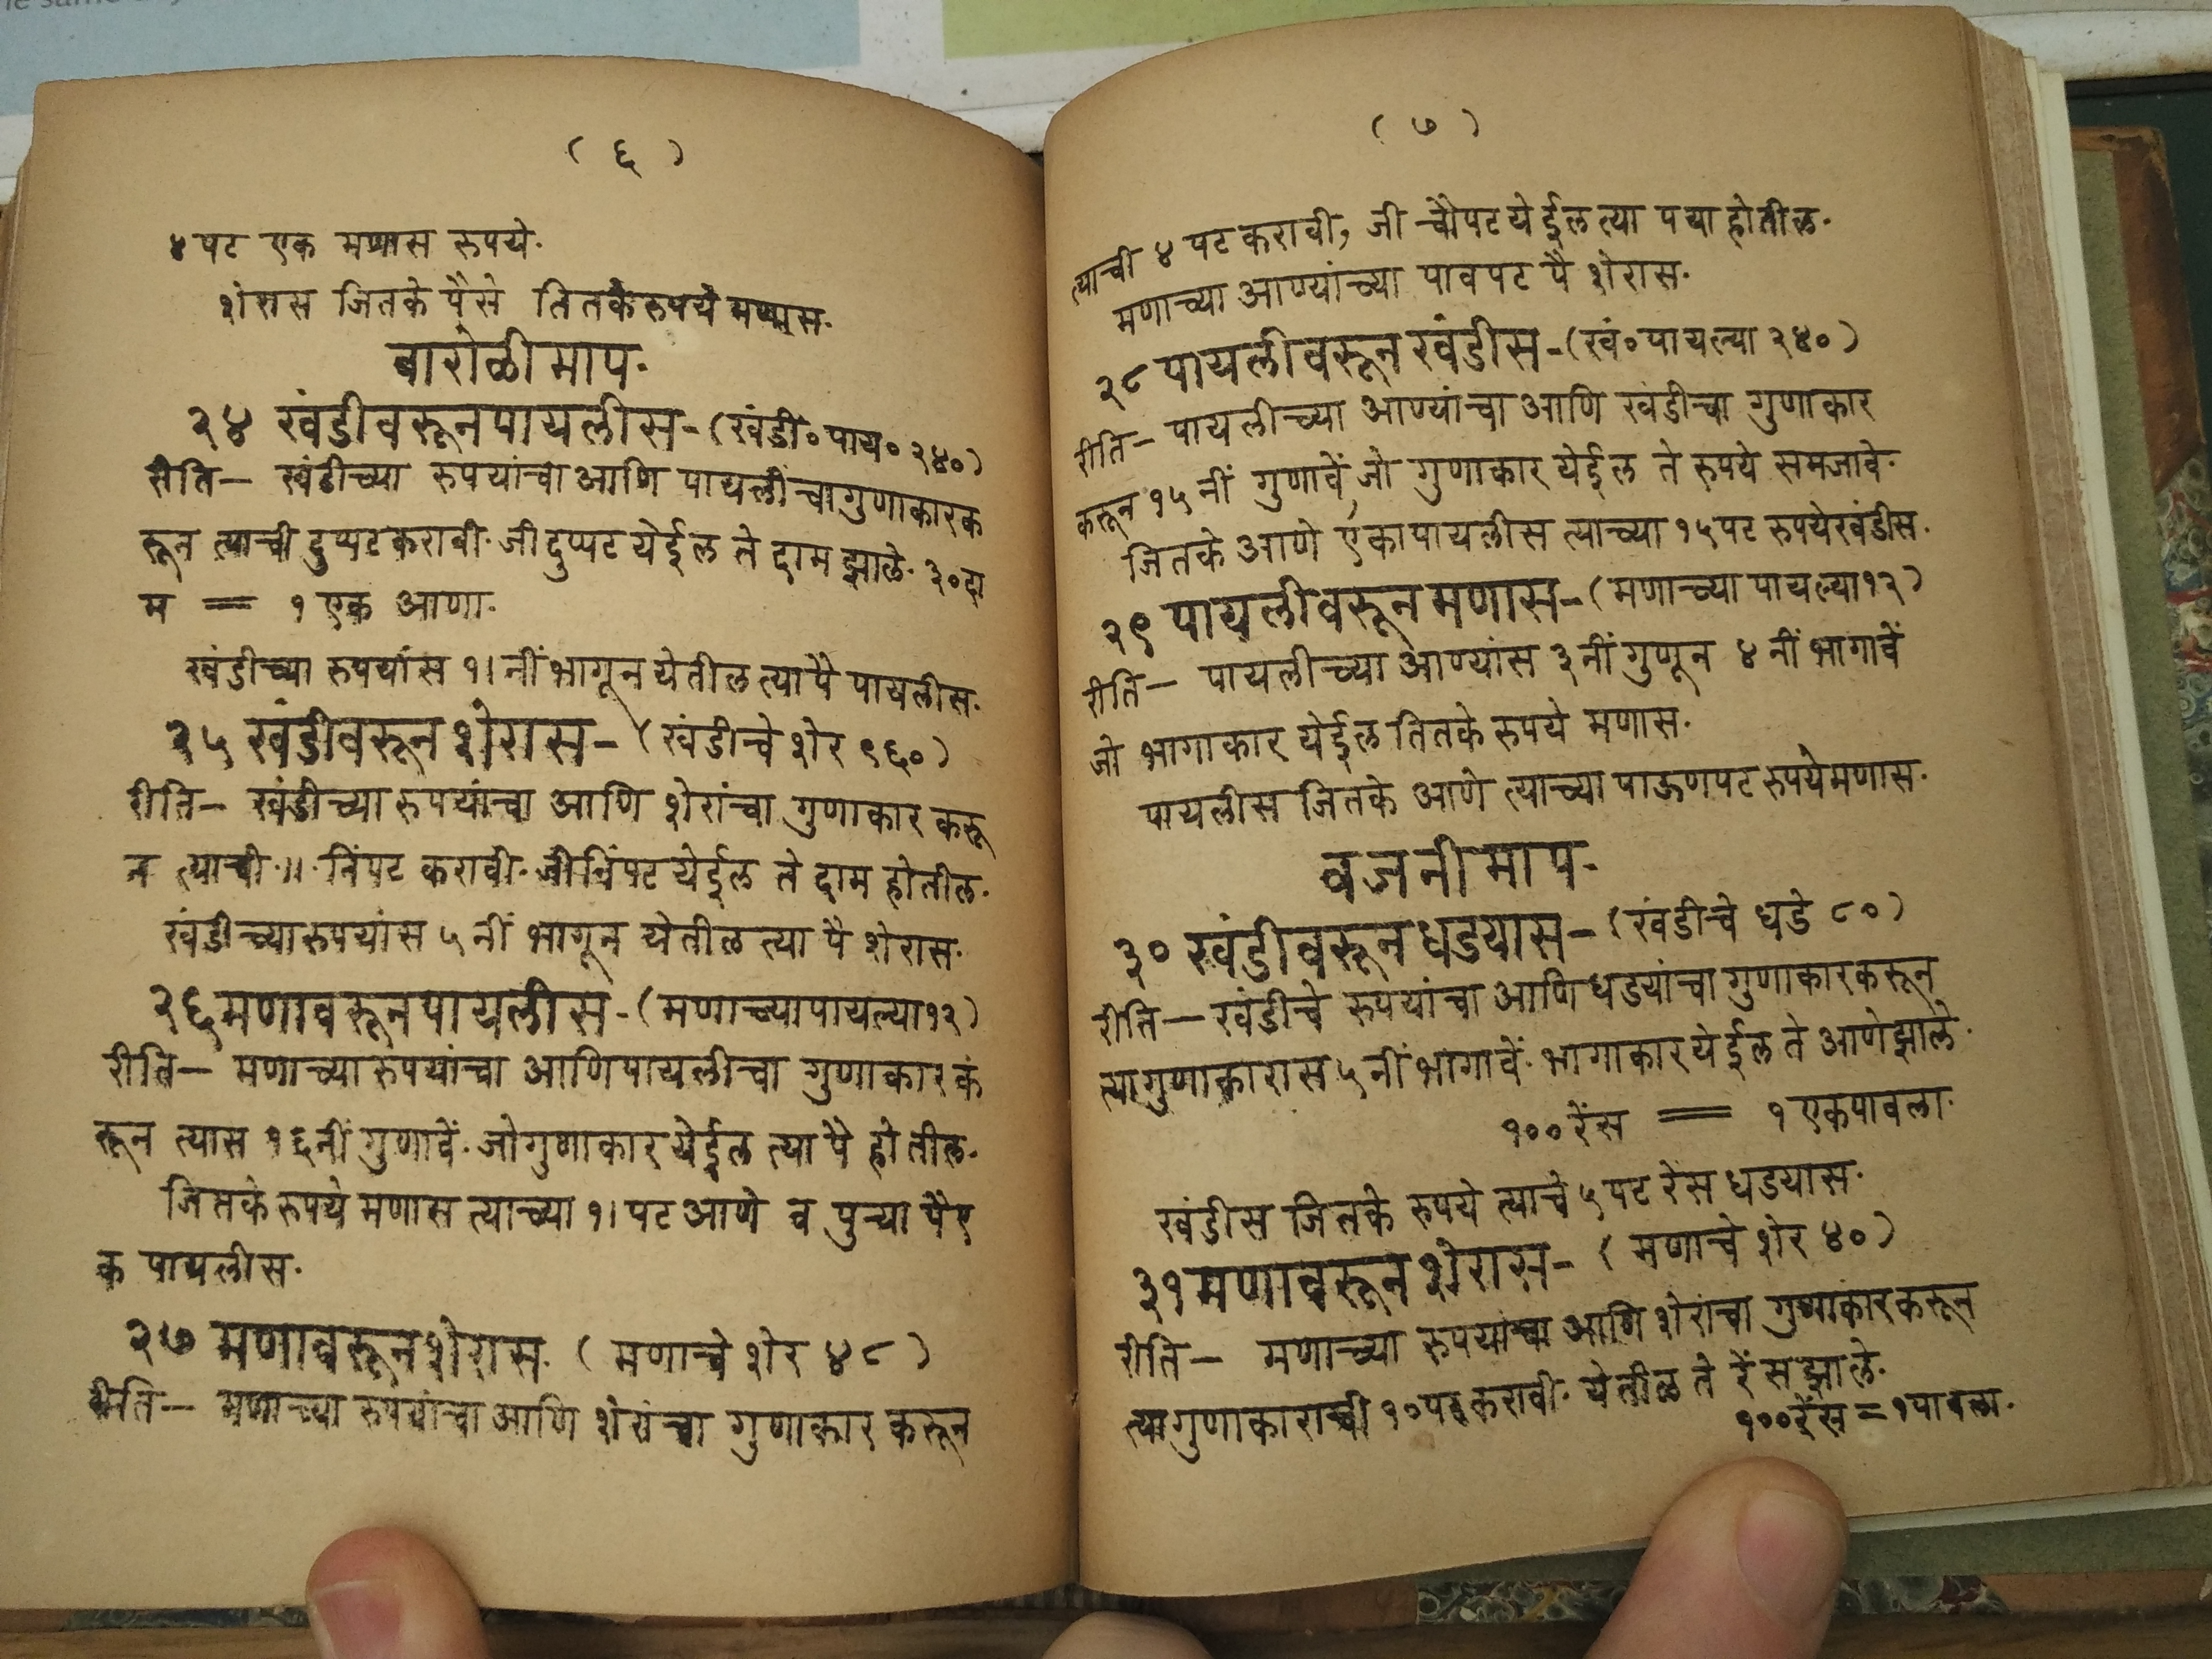 ( ६ )
४ पट एक मणास रुपये.
शेरास जितके पैसे तितके रुपये मणास.
बारोळी माप.
२४ खंडीवरून पायलीस - (खंडी॰ पाय॰ २४०)
रीति — खंडीच्या रुपयांचा आणि पायलींचा गुणाकार क
रून त्याची दुप्पट करावी. जी दुप्पट येईल ते दाम झाले. ३० दा
म = १ एक आणा.
खंडीच्या रुपयांस १। नीं भागून येतील त्या पै पायलीस.
२५ खंडीवरून शेरास - (खंडीचे शेर ९६०)
रीति — खंडीच्या रुपयांचा आणि शेरांचा गुणाकार करू
न त्याची ॥ निंपट करावी. जी निंपट येईल ते दाम होतील.
खंडीच्या रुपयांस ५ नीं भागून येतील त्या पै शेरास.
२६ मणावरून पायलीस - (मणाच्या पायल्या १२)
रीति — मणाच्या रुपयांचा आणि पायलीचा गुणाकार क
रून त्यास १६ नीं गुणावें. जो गुणाकार येईल त्या पै होतील.
जितके रुपये मणास त्याच्या १। पट आणे व पुऱ्या पै ए
क पायलीस.
२७ मणावरून शेरास. ( मणाचे शेर ४८ )
रीति — मणाच्या रुपयांचा आणि शेरांचा गुणाकार करून
( ७ )
त्याची ४ पट करावी, जी चौपट येईल त्या पया होतील.
मणाच्या आण्यांच्या पावपट पै शेरास.
२८ पायलीवरून खंडीस - (खं॰ पायल्या २४०)
रीति — पायलीच्या आण्यांचा आणि खंडीचा गुणाकार
करून १५ नीं गुणावें, जो गुणाकार येईल ते रुपये समजावे.
जितके आणे एका पायलीस त्याच्या १५ पट रुपये खंडीस.
२९ पायलीवरून मणास - (मणाच्या पायल्या १२)
रीति — पायलीच्या आण्यांस ३ नीं गुणून ४ नीं भागावें
जो भागाकार येईल तितके रुपये मणास.
पायलीस जितके आणे त्याच्या पाऊणपट रुपये मणास.
वजनी माप.
३० खंडीवरून धडयास - (खंडीचे धडे ८०)
रीति — खंडीचे रुपयांचा आणि धडयांचा गुणाकार करून
त्या गुणाकारास ५ नीं भागावें. भागाकार येईल ते आणे झाले.
१०० रेंस = १ एक पावला.
खंडीस जितके रुपये त्याचे ५ पट रेंस धडयास.
३१ मणावरून शेरास - ( मणाचे शेर ४० )
रीति — मणाच्या रुपयांचा आणि शेरांचा गुणाकार करून
त्या गुणाकाराची १० पट करावी. येतील ते रेंस झाले.
१०० रेंस = १ पावला.